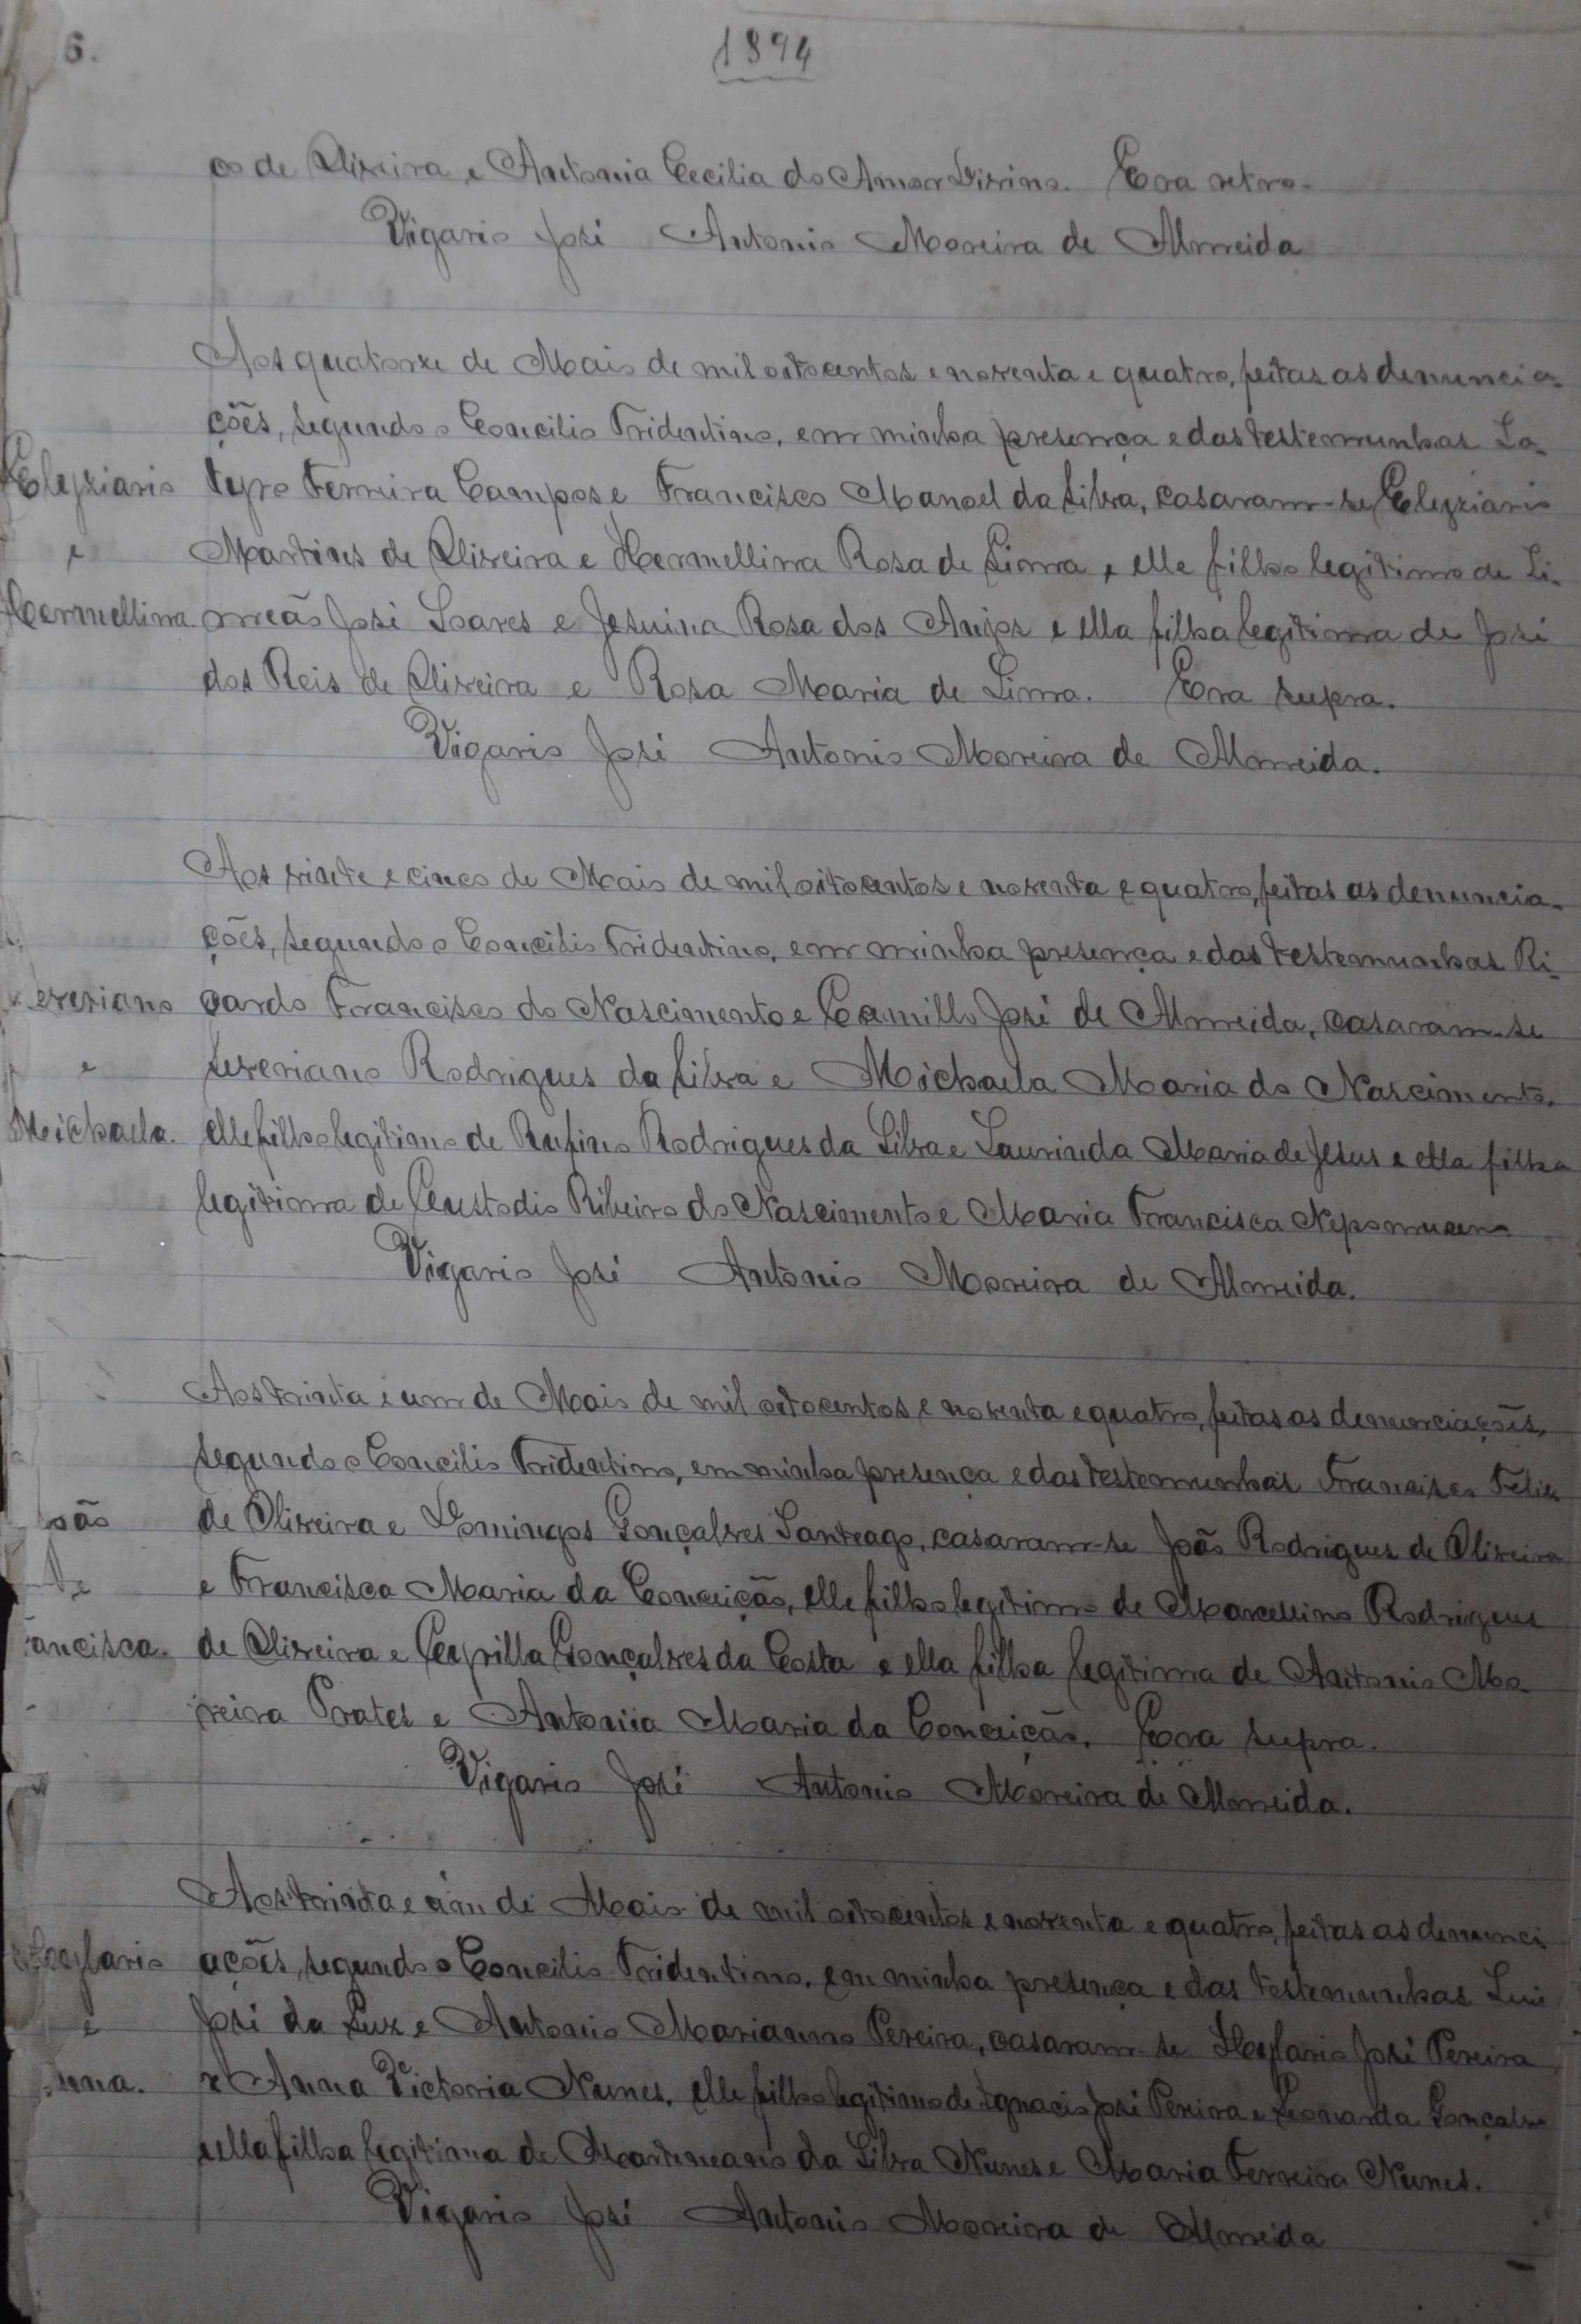 6.
1894
os de Oliveira e Antonia Cecilia do Amor Divino. Era retro.
Vigario José Antonio Moreira de Almeida
Aos quatorze de Maio de mil oitocentos e noventa e quatro, feitas as denuncia-
ções, segundo o Concilio Tridentino, em minha presença e das testemunhas Sa-
Elyziario
tyro Ferreira Campos e Francisco Manoel da Silva, casaram-se Elyziario
e
Martins de Oliveira e Hermellina Rosa de Lima, elle filho legitimo de Si-
Hermellina.
meão José Soares e Jesuina Rosa dos Anjos e ella filha legitima de José
dos Reis de Oliveira e Rosa Maria de Lima. Era supra.
Vigario José Antonio Moreira de Almeida.
Aos vinte e cinco de Maio de mil oitocentos e noventa e quatro, feitas as denuncia-
ções, segundo o Concilio Tridentino, em minha presença e das testemunhas Ri-
evereriano
cardo Francisco do Nascimento e Camillo José de Almeida, casaram-se
e
Severiano Rodrigues da Silva e Michaela Maria do Nascimento,
Michaela.
elle filho legitimo de Rufino Rodrigues da Silva e Laurinda Maria de Jesus e ella filha
legitima de Custodio Ribeiro do Nascimento e Maria Francisca Nepomucena
Vigario José Antonio Moreira de Almeida.
Aos trinta e um de Maio de mil oitocentos e noventa e quatro, feitas as denunciações,
segundo o Concilio Tridentino, em minha presença e das testemunhas Francisco Felix
oão
de Oliveira e Domingos Gonçalves Santeago, casaram-se João Rodrigues de Oliveira
e
e Francisca Maria da Conceição, elle filho legitimo de Marcellino Rodrigues
ancisca.
de Oliveira e Cyrilla Gonçalves da Costa e ella filha legitima de Antonio Mo-
reira Prates e Antonia Maria da Conceição. Era supra.
Vigario José Antonio Moreira de Almeida.
Aos trinta e um de Maio de mil oitocentos e noventa e quatro, feitas as denunci
ações, segundo o Concilio Tridentino, em minha presença e das testemunhas Luiz
e
José da Luz e Antonio Marianno Pereira, casaram-se José Pereira
nna.
e Anna Victoria Nunes, elle filho legitimo de Ignacio José Pereira e Leonarda Gonçalves
e ella filha legitima de da Silva Nunes e Maria Ferreira Nunes.
Vigario José Antonio Moreira de Almeida